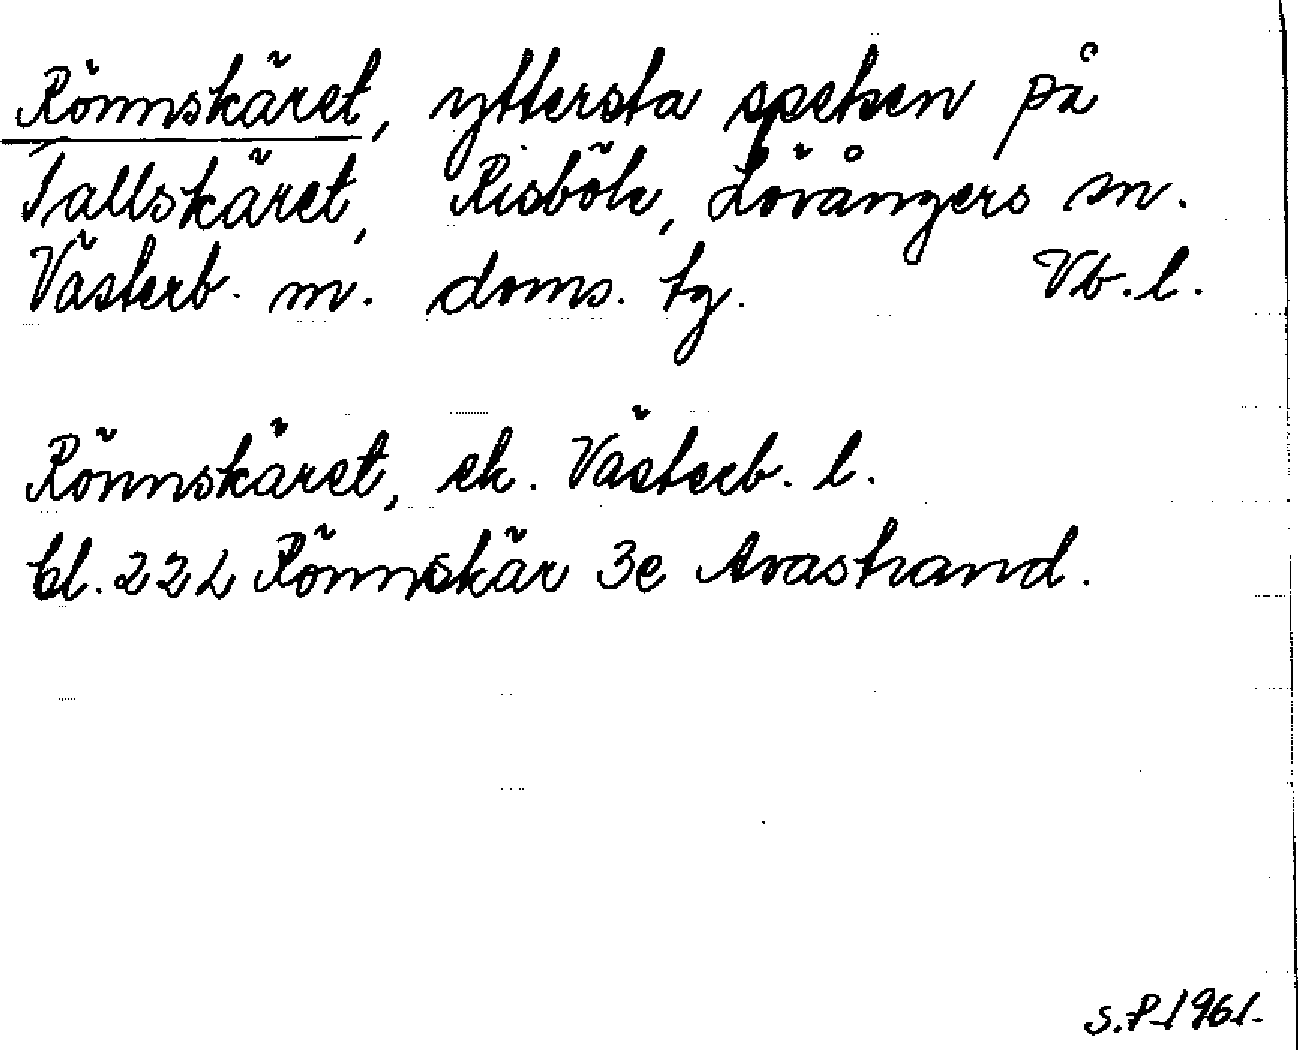 Rönnskäret, yttersta speten på
Tallskäret, Risböle, Lövångers sn.
Västerb. m. doms. tg. Vb. l.
Rönnskäret, ek. Västerb. l.
bl. 22 L Rönnskär 3e Avastrand.
S. P. 1961.